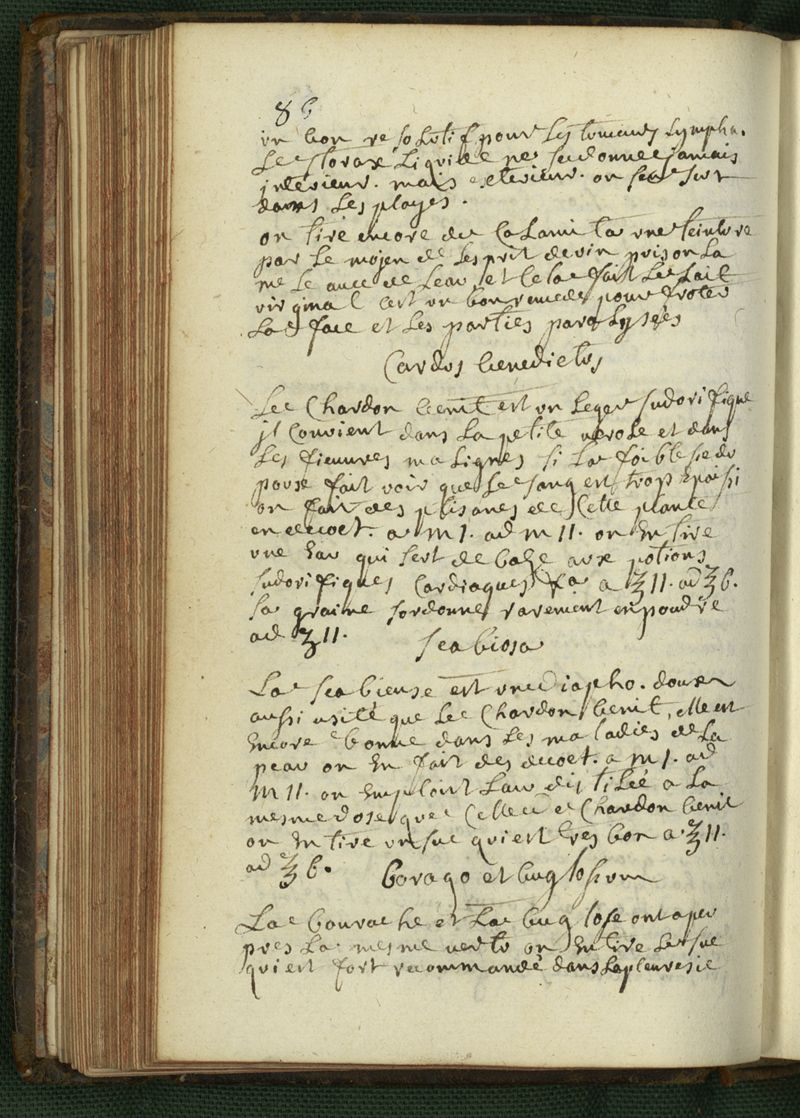 86
un bon resolutif pour les tumeurs lympha.
Le storax liquide ne se donne jamais
interieur. mais exterieur. on sen sert
dans les playes.
on tire encore du Calamita une teinture
par le mojen de lesprit de vin puis on la
mele avec de leau et cela fait le lait
virginal cest un bon remede pour froter
La face et les parties paralysées
Cardos benedictos
Le Chardon benit est un leger sudorifique
jl convient dans la petite verole et dans
Les fieuvres malignes si la foiblesse du
pouse fait voir que le sang est trop epaissi
on fait des ptisanes de Cette plante
en decoct. a m j. ad m 11. on en tire
une eau qui sert de baze aux potions
sudorifiques Cardiaques a ʒ 11. ad ʒ 6.
la graine sordonne rarement en poudre
ad ʒ 11.
Scabiosa
La scabieuse est une diapho. doux
aussi usité que le Chardon benit, elle est
encore bonne dans les maladies de la
peau on en fait des decoct. a m j. ad
m 11. on emploit leau distileé a la
mesme dose que Celle de Chardon benit
on en tire un suc qui est tres bon a ʒ 11.
ad ʒ 6.
borago et buglossum
La bourache et la buglose ont a peu
pres la mesme vertu on en tire le suc
qui est fort recommandé dans la pleuresie